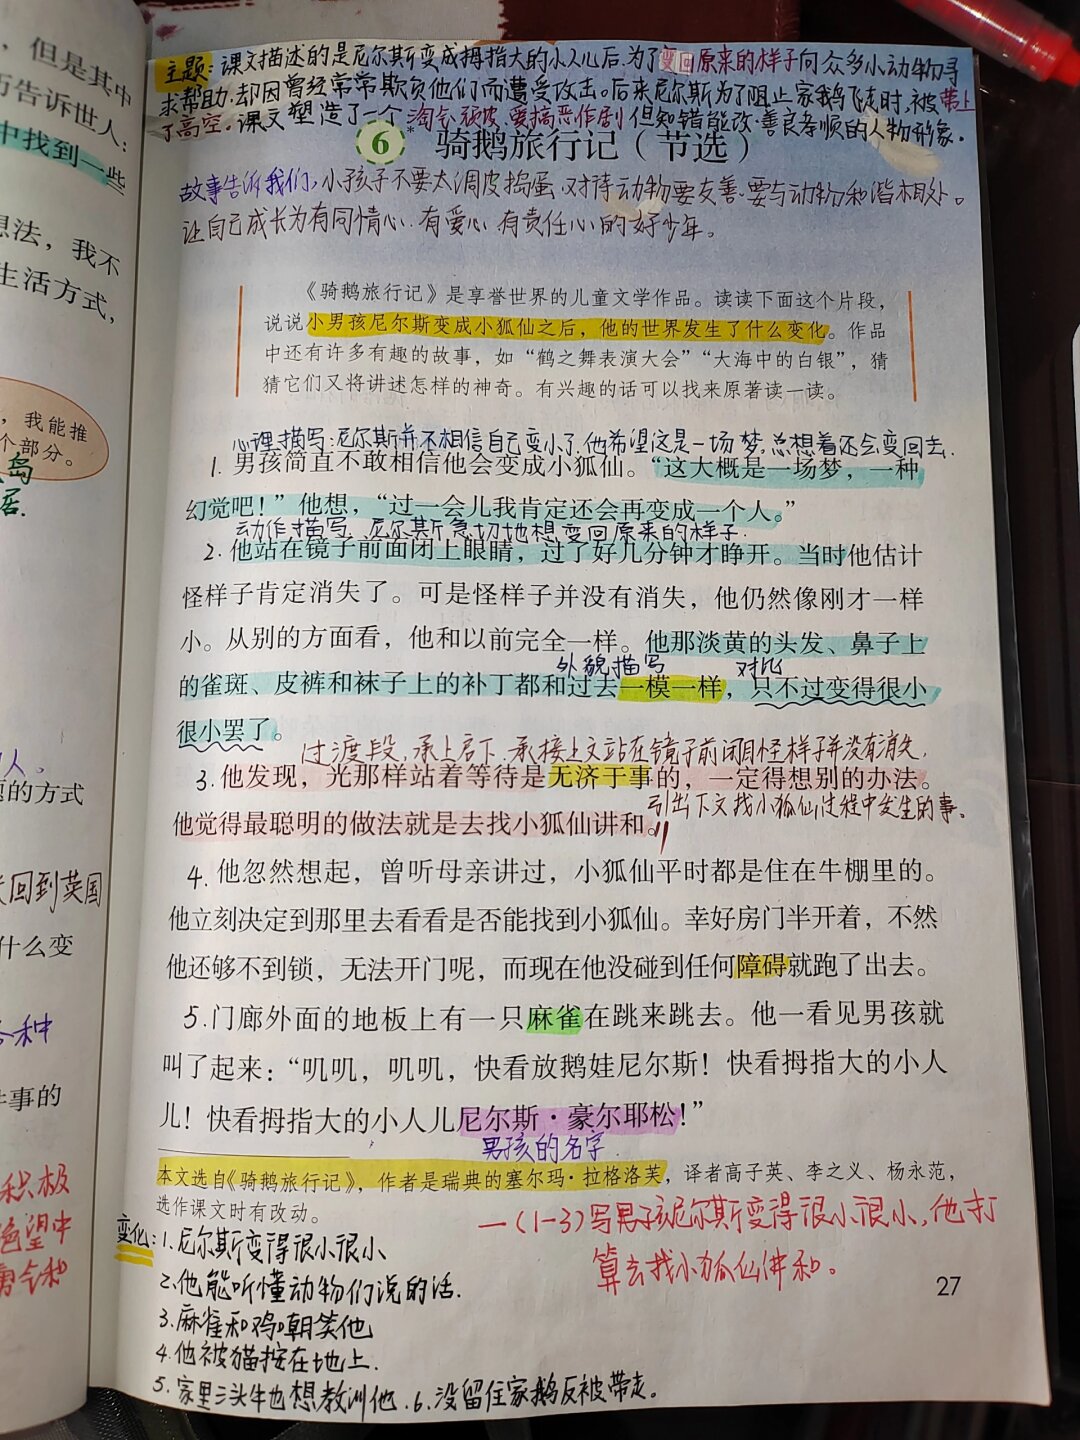 ，但是其中
告诉世人：
中找到一些
想法，我不
生活方式，
，我能推
个部分。
岛
居.
人。
的方式
回到英国
什么变
各种
件事的
积极
绝望中
勇气和
主题：课文描述的是尼尔斯变成拇指大的小人儿后.为了变回原来的样子向众多小动物寻
求帮助.却因曾经常常欺负他们而遭受攻击。后来尼尔斯为了阻止家鹅飞走时,被带上
了高空。课文塑造了一个淘气顽皮.爱搞恶作剧但知错能改.善良孝顺的人物形象。
6* 骑鹅旅行记（节选）
故事告诉我们,小孩子不要太调皮捣蛋.对待动物要友善.要与动物和谐相处。
让自己成长为有同情心.有爱心.有责任心的好少年。
《骑鹅旅行记》是享誉世界的儿童文学作品。读读下面这个片段，
说说小男孩尼尔斯变成小狐仙之后，他的世界发生了什么变化。作品
中还有许多有趣的故事，如“鹤之舞表演大会”“大海中的白银”，猜
猜它们又将讲述怎样的神奇。有兴趣的话可以找来原著读一读。
心理描写:尼尔斯并不相信自己变小了.他希望这是一场梦.总想着还会变回去.
1. 男孩简直不敢相信他会变成小狐仙。“这大概是一场梦，一种
幻觉吧！”他想，“过一会儿我肯定还会再变成一个人。”
动作描写 尼尔斯急切地想变回原来的样子.
2. 他站在镜子前面闭上眼睛，过了好几分钟才睁开。当时他估计
怪样子肯定消失了。可是怪样子并没有消失，他仍然像刚才一样
小。从别的方面看，他和以前完全一样。他那淡黄的头发、鼻子上
外貌描写 对比
的雀斑、皮裤和袜子上的补丁都和过去一模一样，只不过变得很小
很小罢了。
过渡段.承上启下.承接上文站在镜子前闭目怪样子并没有消失,
3. 他发现，光那样站着等待是无济于事的，一定得想别的办法。
引出下文找小狐仙过程中发生的事。
他觉得最聪明的做法就是去找小狐仙讲和。
4. 他忽然想起，曾听母亲讲过，小狐仙平时都是住在牛棚里的。
他立刻决定到那里去看看是否能找到小狐仙。幸好房门半开着，不然
他还够不到锁，无法开门呢，而现在他没碰到任何障碍就跑了出去。
5. 门廊外面的地板上有一只麻雀在跳来跳去。他一看见男孩就
叫了起来：“叽叽，叽叽，快看放鹅娃尼尔斯！快看拇指大的小人
儿！快看拇指大的小人儿尼尔斯·豪尔耶松！”
男孩的名字
本文选自《骑鹅旅行记》，作者是瑞典的塞尔玛·拉格洛芙，译者高子英、李之义、杨永范，
选作课文时有改动。
一(1-3)写男孩尼尔斯变得很小很小,他打
算去找小狐仙讲和。
变化:1.尼尔斯变得很小很小
2.他能听懂动物们说的话.
3.麻雀和鸡嘲笑他
4.他被猫按在地上.
5.家里三头牛也想教训他.6.没留住家鹅反被带走。
27